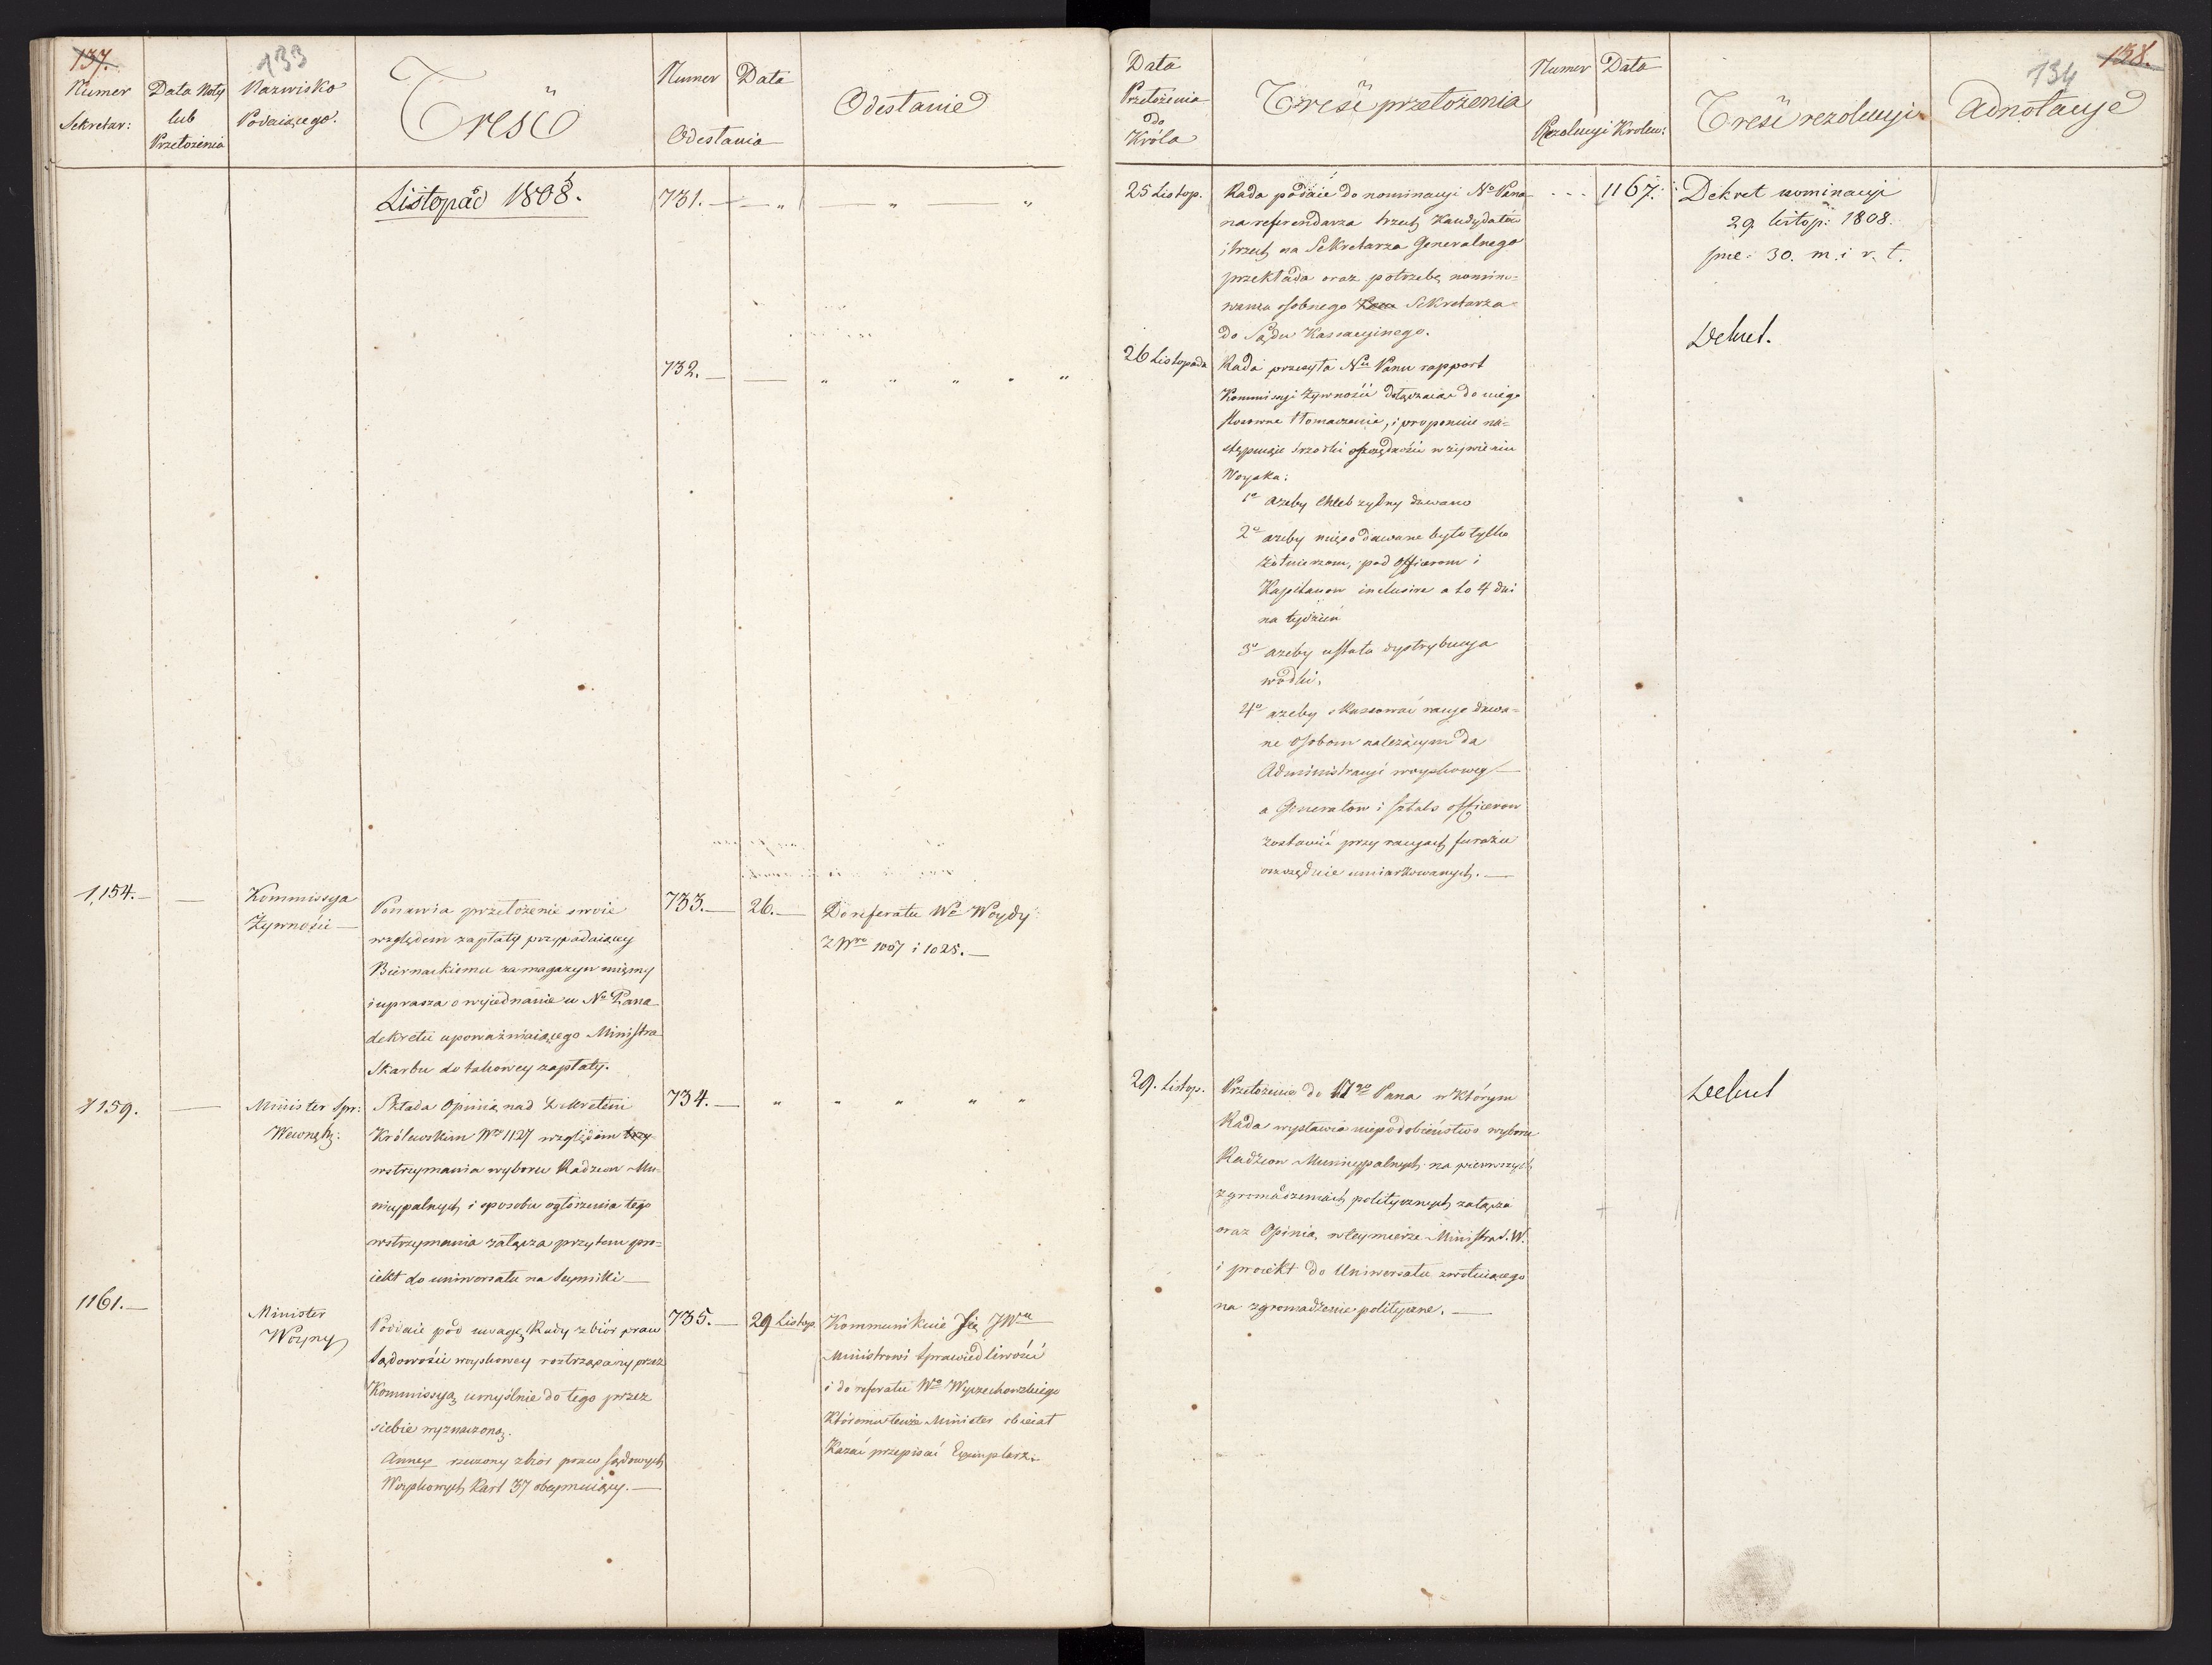 137.
133
Numer
Sekretar:
Data Noty
lub
Przełożenia
Nazwisko
Podaiącego.
Treść
Numer
Data
Odesłania
Odesłanie
Listopad 1808.
731. — — „ — „ — „
732. — — „ „ „ „ „
1,154. —
—
Kommissya
Żywności —
Ponawia przełożenie swoie
względem zapłaty przypadaiącey
Biernackiemu za magazyn mięsny
i uprasza o wyiednanie u No Pana
dekretu upoważniaiącego Ministra
Skarbu do takowey zapłaty.
733. —
26. —
Do referatu Wo Woydy
Z Nro 1007 i 1025. —
1159.
—
Minister Spr:
Wewnętz:
Składa Opinią nad Dekretem
Królewskim Nro 1127 względem
wstrzymania wyboru Radzcow Mu-
nicypalnych i sposobu ogłoszenia tego
wstrzymania załącza przytem pro-
iekt do uniwersału na Seymiki —
734. — „ „ „ „ „
1161. —
Minister
Woyny
Podaie pod uwagę Rady zbiór praw
Sądowości woyskowey roztrząsany przez
Kommissyą umyślnie do tego przez
siebie wyznaczoną.
Annex rzeczony zbiór praw sądowych
Woyskowych Kart 37 obeymuiący. —
735. —
29 Listop.
Kommunikuie się JWu
Ministrowi Sprawiedliwości
i do referatu Wo Wyczechowskiego
Któremu tenże Minister obiecał
Kazać przepisać Exemplarz.
138.
134
Data
Przełożenia
do
Króla
Treść przełożenia
Numer
Data
Rezolucyi Krolew:
Treść rezolucyi
Adnotacye
25 Listop.
Rada podaie do nominacyi No Pana
na referendarza trzech Kandydatów
i trzech na Sekretarza Generalnego
przekłada oraz potrzebę nomino-
wania osobnego Sekretarza
do Sądu Kassacyinego.
- - - 1167.
Dekret nominacyi
29 listop: 1808.
30. m. i r. t.
Dekret.
26 Listopada
Rada przesyła Nu Panu rapport
Kommissyi Żywności dołączaiąc do niego
stosowne tłomaczenie, i proponuie na-
stępuiące środki oszczędności w żywieniu
Woyska:
1o ażeby Chleb żytny dawano
2o ażeby mięso dawane było tylko
żołnierzom, pod officerom i
Kapitanom inclusive a to 4 dni
na tydzień
3o ażeby ustała dystrybucya
wódki,
4o ażeby skassować racye dawa-
ne osobom należącym do
Administracyi woyskowey —
a Generałow i sztabs officerow
zostawić przy racyach furażu
oszczędnie umiarkowanych. —
29. Listop.
Przełożenie do Ngo Pana w którym
Rada wystawia niepodobieństwo wyboru
Radzcow Municypalnych na pierwszych
zgromadzeniach politycznych załącza
oraz Opinią w tey mierze Ministra S. W.
i proiekt do Uniwersału zwołuiącego
na zgromadzenie polityczne. —
Dekret